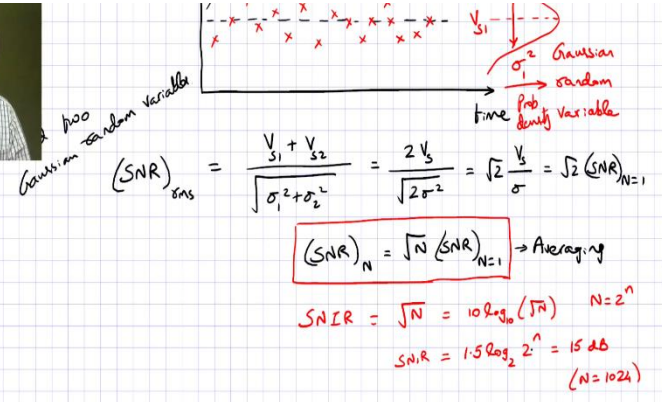 V_S1
σ_1^2 Gaussian
random
time Prob density Variable
two
Gaussian random variable
(SNR)_rms = (V_S1 + V_S2) / √(σ_1^2+σ_2^2) = 2V_s / √(2σ^2) = √2 V_s/σ = √2 (SNR)_N=1
(SNR)_N = √N (SNR)_N=1 → Averaging
SNIR = √N = 10 log_10 (√N) N=2^n
SNIR = 1.5 log_2 2^n = 15 dB
(N=1024)